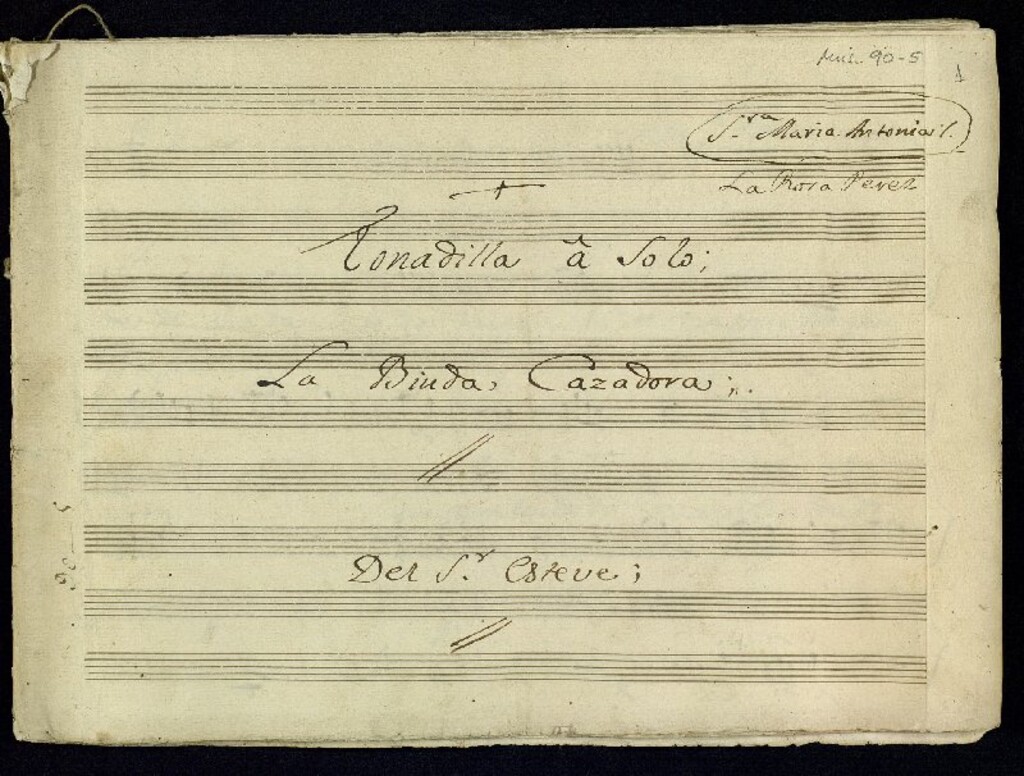 Mus. 90-5
1
S.ra Maria Antonia
La Rosa Perez
Tonadilla â Solo;
La Biuda, Cazadora;,.
Del S.r Esteve;